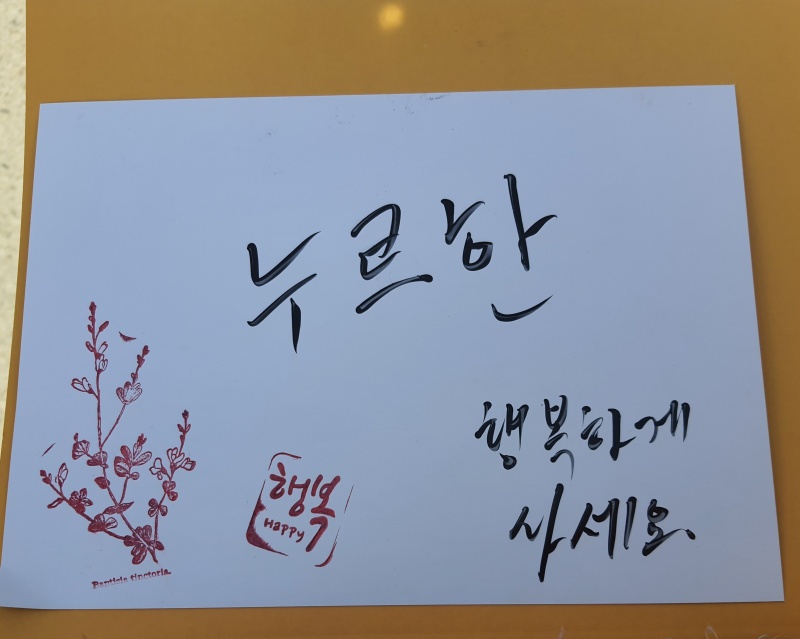 누르한
행복하게
사세요.
행복
Happy
Baptisia tinctoria.